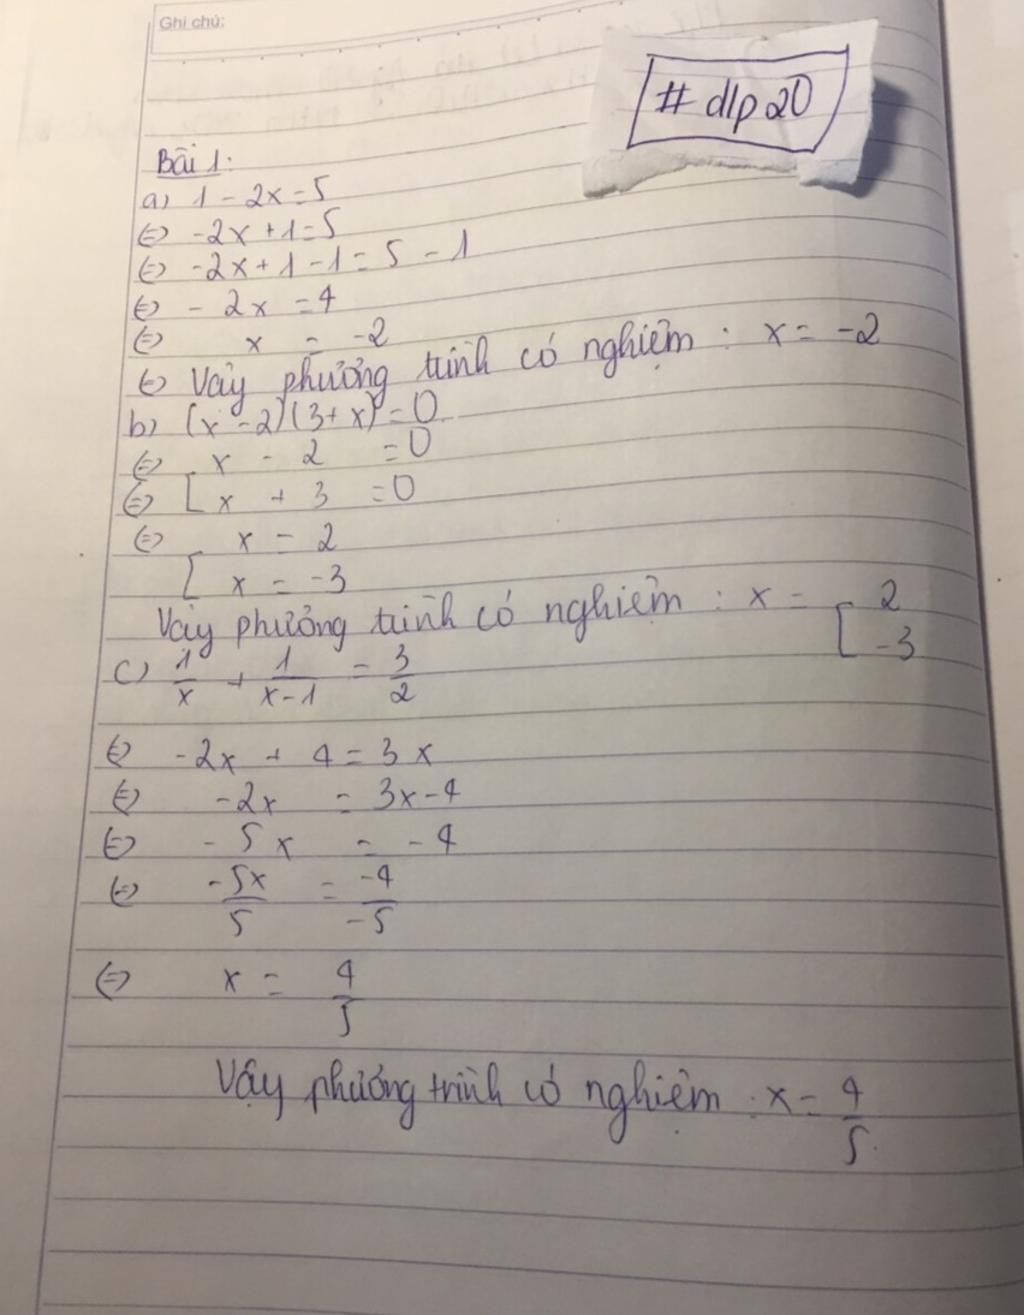 Ghi chú:
#dlp20
Bài 1:
a) 1 - 2x = 5
⇔ -2x + 1 = 5
⇔ -2x + 1 - 1 = 5 - 1
⇔ - 2x = 4
⇔ x = -2
⇔ Vậy phương trình có nghiệm : x = -2
b) (x - 2)(3 + x) = 0
⇔ x - 2 = 0
⇔ [ x + 3 = 0
⇔ x = 2
[ x = -3
Vậy phương trình có nghiệm : x = [ 2
-3
c) 1/x + 1/(x-1) = 3/2
⇔ -2x + 4 = 3x
⇔ -2x = 3x - 4
⇔ - 5x = - 4
⇔ -5x/5 = -4/-5
⇔ x = 4/5
Vậy phương trình có nghiệm : x = 4/5